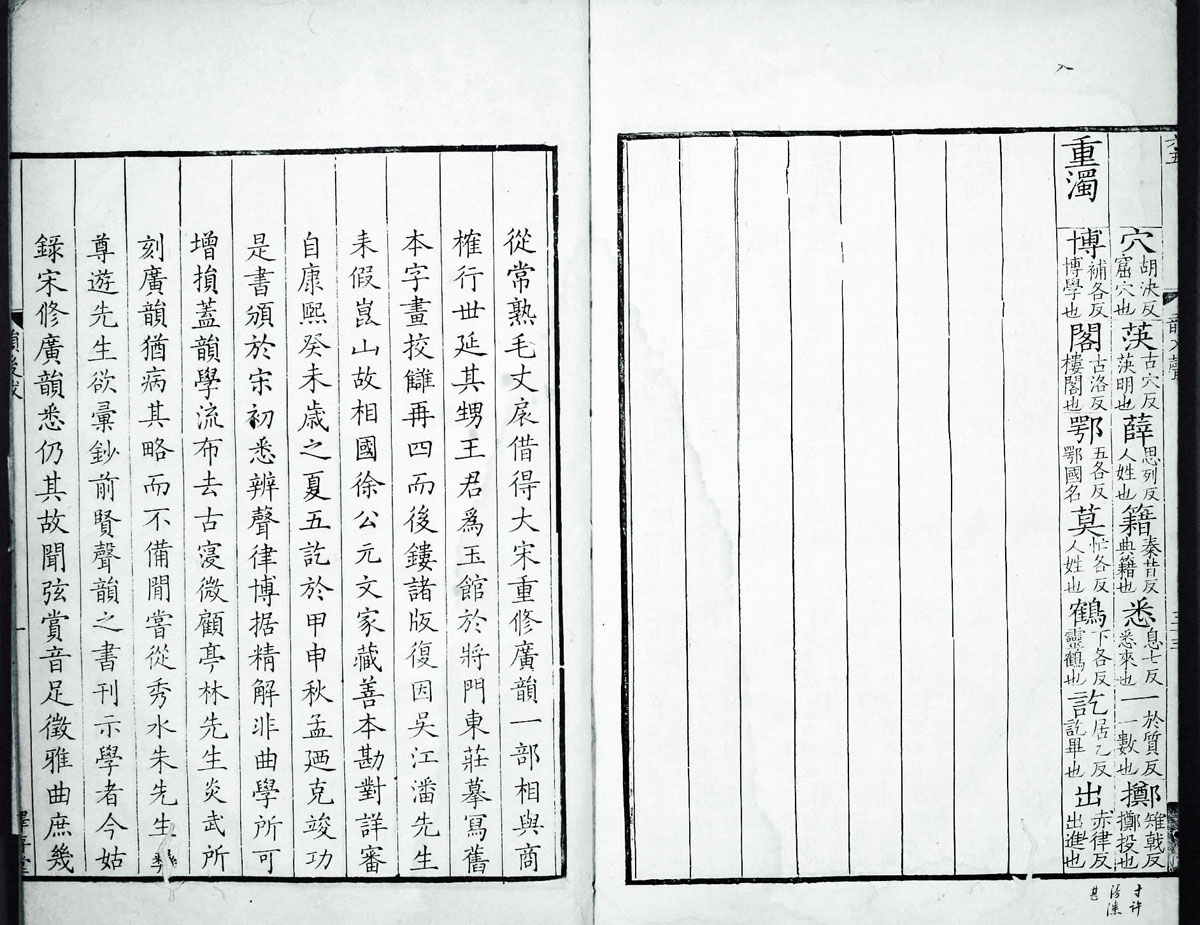 穴 胡決反窟穴也 䓇 古穴反䓇明也 薛 思列反人姓也 籍 秦昔反典籍也 悉 息七反悉來也 一 於質反一數也 擲 雉戟反擲投也
重濁 博 補各反博學也 閣 古洛反樓閣也 鄂 五各反鄂國名 莫 忙各反人姓也 鶴 下各反靈鶴也 訖 居乙反訖畢也 出 赤律反出進也
從常熟毛丈扆借得大宋重修廣韻一部相與商
榷行世延其甥王君爲玉館於將門東莊摹寫舊
本字畫挍讎再四而後鏤諸版復因吳江潘先生
耒假崑山故相國徐公元文家藏善本勘對詳審
自康熙癸未歲之夏五訖於甲申秋孟廼克竣功
是書頒於宋初悉辨聲律博据精解非曲學所可
增損蓋韻學流布去古寖微顧亭林先生炎武所
刻廣韻猶病其略而不備閒嘗從秀水朱先生
尊遊先生欲彙鈔前賢聲韻之書刊示學者今姑
錄宋修廣韻悉仍其故聞弦賞音足徵雅曲庶幾